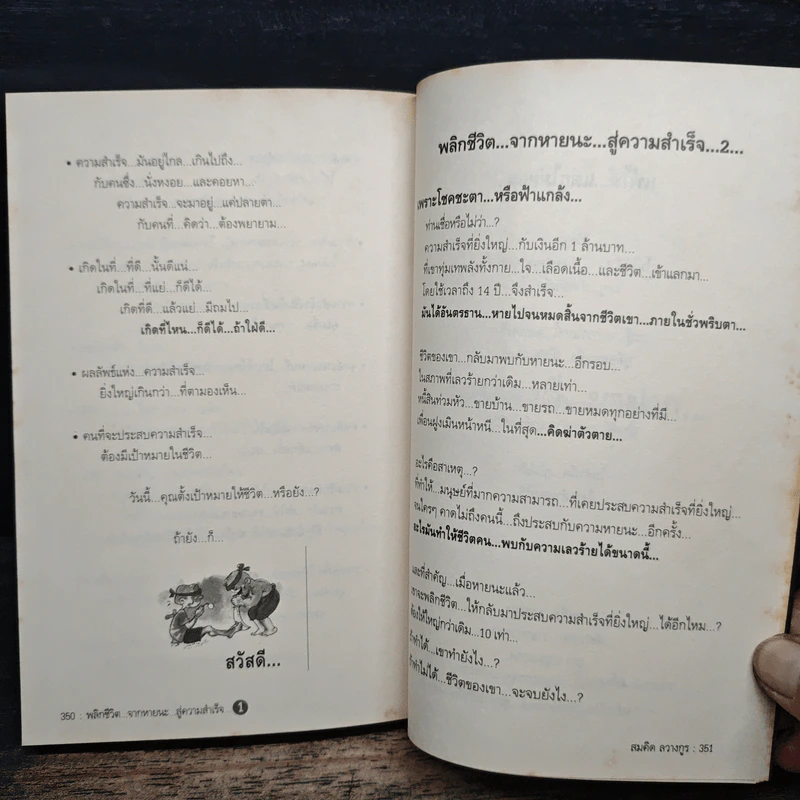 • ความสำเร็จ...มันอยู่ไกล...เกินไปถึง...
กับคนซึ่ง...นั่งหงอย...และคอยหา...
ความสำเร็จ...จะมาอยู่...แค่ปลายตา...
กับคนที่...คิดว่า...ต้องพยายาม...
• เกิดในที่...ที่ดี...นั้นดีแน่...
เกิดในที่...ที่แย่...ก็ดีได้...
เกิดที่ดี...แล้วแย่...มีถมไป...
เกิดที่ไหน...ก็ดีได้...ถ้าใฝ่ดี...
• ผลลัพธ์แห่ง...ความสำเร็จ...
ยิ่งใหญ่เกินกว่า...ที่ตามองเห็น...
• คนที่จะประสบความสำเร็จ...
ต้องมีเป้าหมายในชีวิต...
วันนี้...คุณตั้งเป้าหมายให้ชีวิต...หรือยัง...?
ถ้ายัง...ก็...
สวัสดี...
350 : พลิกชีวิต...จากหายนะ...สู่ความสำเร็จ 1
พลิกชีวิต...จากหายนะ...สู่ความสำเร็จ...2...
เพราะโชคชะตา...หรือฟ้าแกล้ง...
ท่านเชื่อหรือไม่ว่า...?
ความสำเร็จที่ยิ่งใหญ่...กับเงินอีก 1 ล้านบาท...
ที่เขาทุ่มเทพลังทั้งกาย...ใจ...เลือดเนื้อ...และชีวิต...เข้าแลกมา...
โดยใช้เวลาถึง 14 ปี...จึงสำเร็จ...
มันได้อันตรธาน...หายไปจนหมดสิ้นจากชีวิตเขา...ภายในชั่วพริบตา...
ชีวิตของเขา...กลับมาพบกับหายนะ...อีกรอบ...
ในสภาพที่เลวร้ายกว่าเดิม...หลายเท่า...
หนี้สินท่วมหัว...ขายบ้าน...ขายรถ...ขายหมดทุกอย่างที่มี...
เพื่อนฝูงเมินหน้าหนี...ในที่สุด...คิดฆ่าตัวตาย...
อะไรคือสาเหตุ...?
ที่ทำให้...มนุษย์ที่มากความสามารถ...ที่เคยประสบความสำเร็จที่ยิ่งใหญ่...
จนใครๆ คาดไม่ถึงคนนี้...ถึงประสบกับความหายนะ...อีกครั้ง...
อะไรมันทำให้ชีวิตคน...พบกับความเลวร้ายได้ขนาดนี้...
และที่สำคัญ...เมื่อหายนะแล้ว...
เขาจะพลิกชีวิต...ให้กลับมาประสบความสำเร็จที่ยิ่งใหญ่...ได้อีกไหม...?
ต้องให้ใหญ่กว่าเดิม...10 เท่า...
ถ้าทำได้...เขาทำยังไง...?
ถ้าทำไม่ได้...ชีวิตของเขา...จะจบยังไง...?
สมคิด ลวางกูร : 351